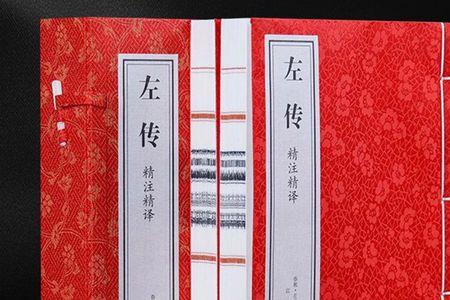 左传
精注精译
左传
精注精译